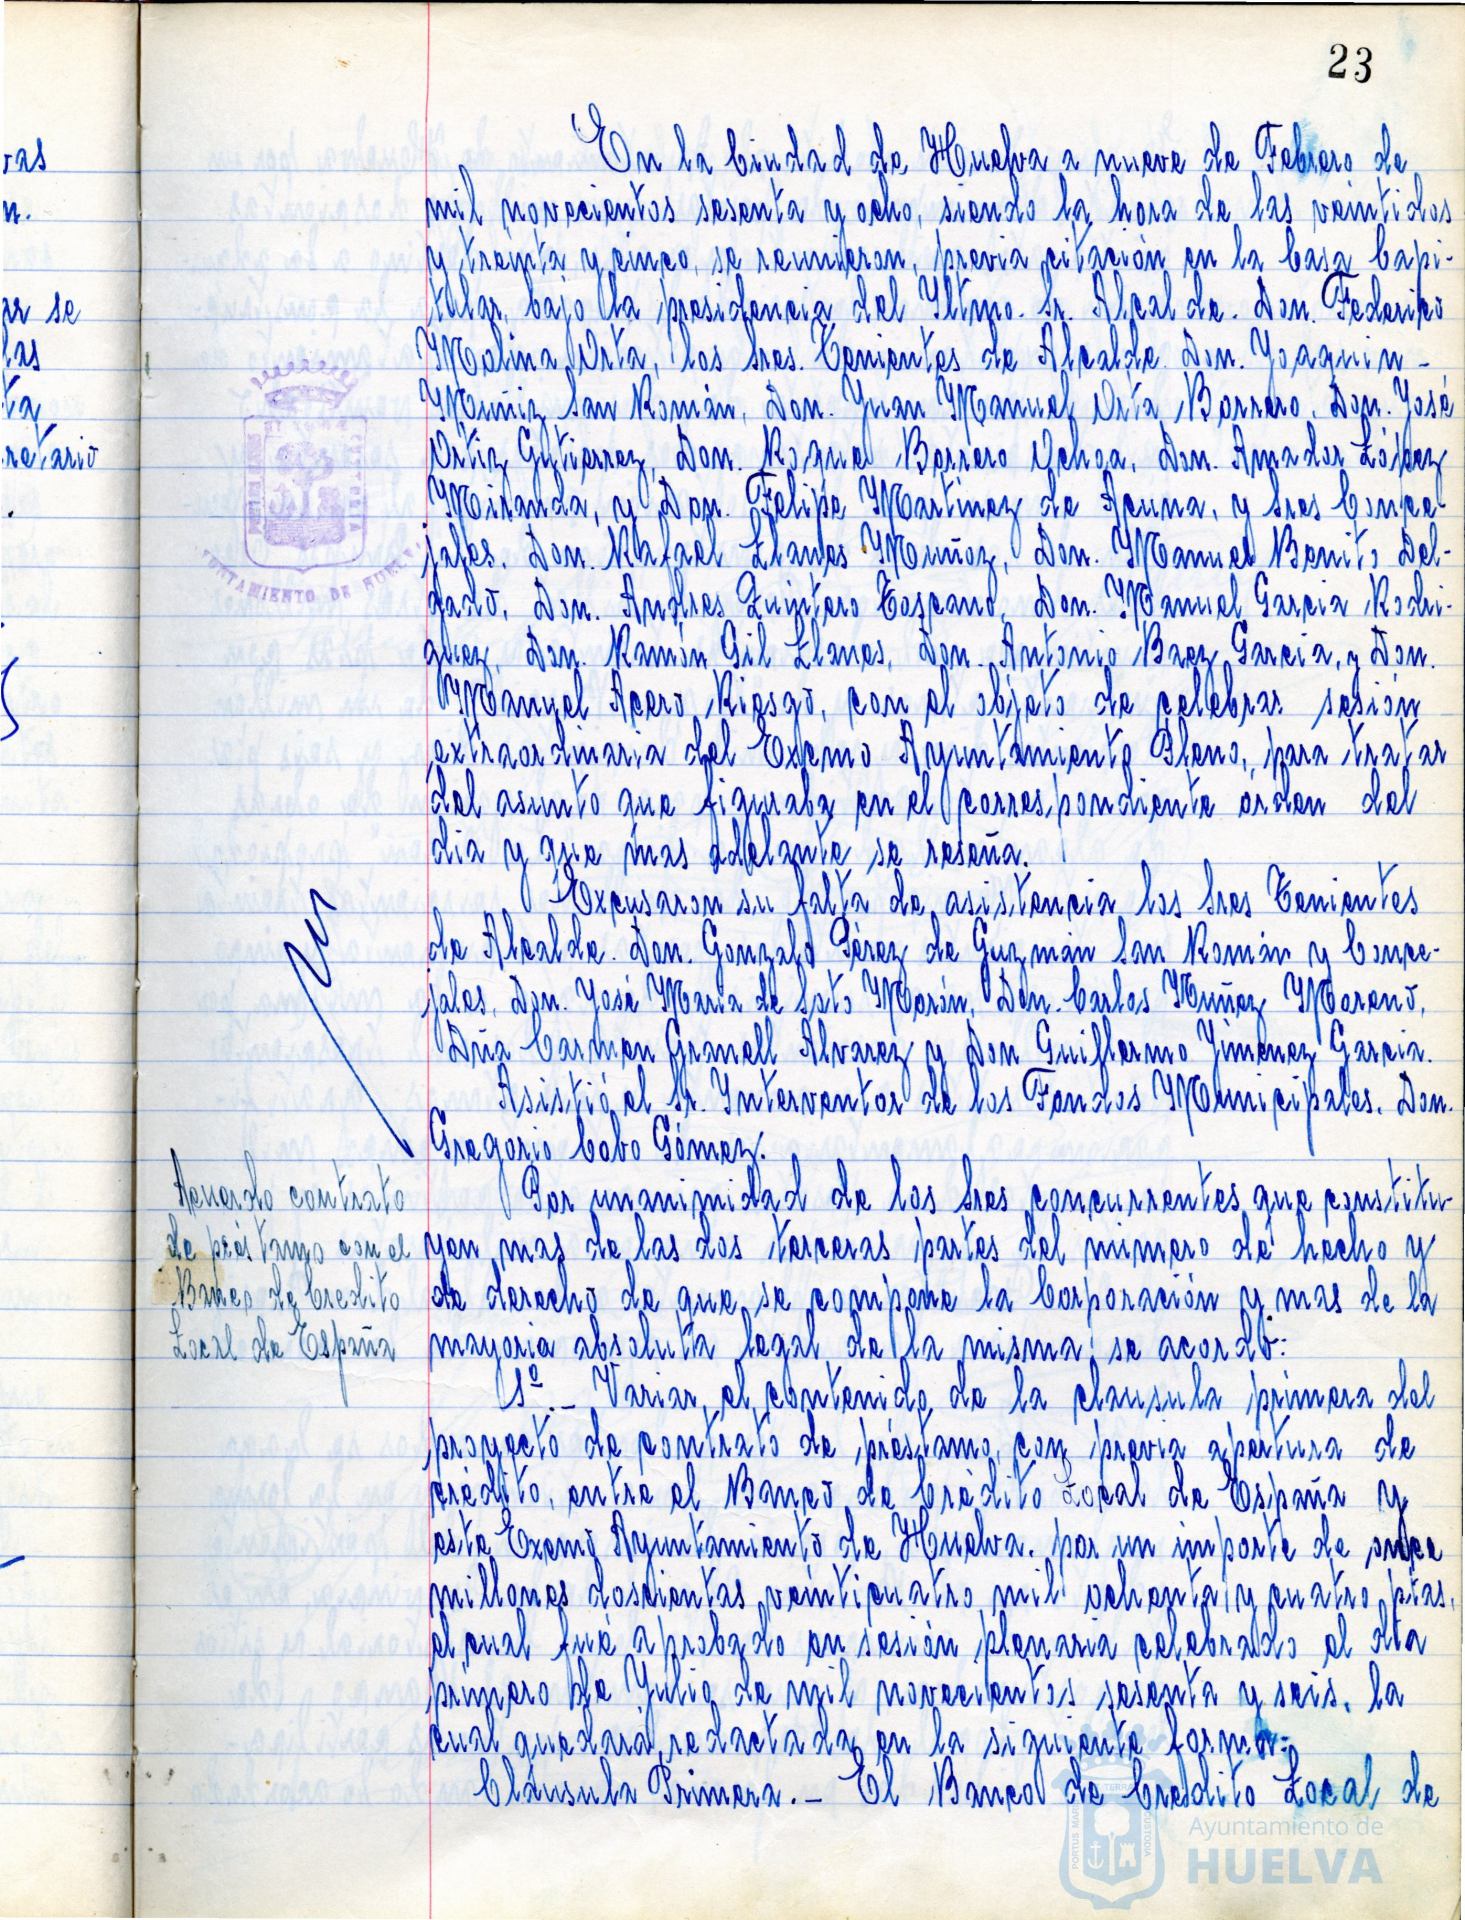 23
En la Ciudad de Huelva a nueve de Febrero de
mil novecientos sesenta y ocho, siendo la hora de las veintidos
y treinta y cinco, se reunieron, previa citación en la Casa Capi-
tular, bajo la presidencia del Iltmo. Sr. Alcalde. Don. Federico
Molina Orta, los Sres. Tenientes de Alcalde Don. Joaquin -
Muñiz San Román, Don. Juan Manuel Orta Borrero, Don. José
Ortiz Gutierrez, Don. Roque Borrero Ochoa, Don. Amador López
Miranda, y Don. Felipe Martinez de Acuna, y Sres Conce-
jales, Don. Rafael Llanes Muñoz, Don. Manuel Benito Del-
gado, Don. Andres Quintero Toscano, Don. Manuel Garcia Rodri-
guez, Don. Ramón Gil Llanes, Don. Antonio Baez Garcia, y Don.
Manuel Acero Riesgo, con el objeto de celebrar sesión
extraordinaria del Excmo Ayuntamiento Pleno, para tratar
del asunto que figuraba en el correspondiente orden del
dia y que mas adelante se reseña.
Excusaron su falta de asistencia los Sres Tenientes
de Alcalde. Don. Gonzalo Pérez de Guzmán San Román y Conce-
jales, Don. José Maria de Soto Morón, Don. Carlos Muñoz Moreno,
Dña Carmen Granell Alvarez y Don Guillermo Jiménez Garcia.
Asistió el Sr. Interventor de los Fondos Municipales. Don.
Gregorio Cobo Gómez.
Acuerdo contrato
de préstamo con el
Banco de Credito
Local de España
Por unanimidad de los Sres concurrentes que constitu-
yen mas de las dos terceras partes del número de hecho y
de derecho de que se compone la Corporación y mas de la
mayoria absoluta legal de la misma, se acordó:
1º.- Variar el contenido de la clausula primera del
proyecto de contrato de préstamo, con previa apertura de
crédito, entre el Banco de Crédito Local de España y
este Excmo Ayuntamiento de Huelva. por un importe de once
millones doscientas veinticuatro mil ochenta y cuatro ptas,
el cual fué aprobado en sesión plenaria celebrado el dia
primero de Julio de mil novecientos sesenta y seis, la
cual quedará redactada en la siguiente forma:
Cláusula Primera.- El Banco de Credito Local de
vas
n.
ar se
las
ta
retario
AYUNTAMIENTO DE HUELVA
PORTUS MARIS
TERRAE
CUSTODIA
Ayuntamiento de
HUELVA